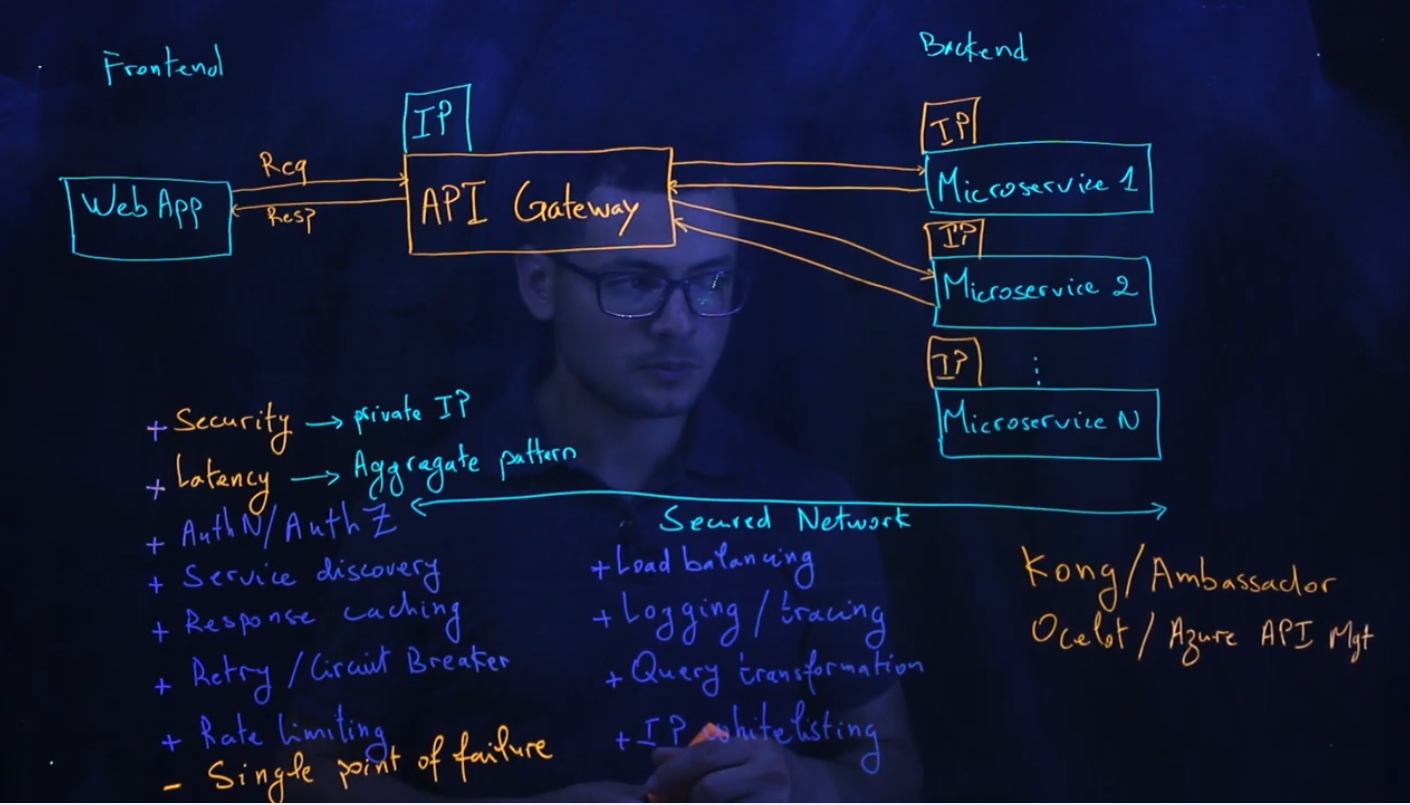 Frontend
Backend
IP
IP
Req
Web App
Resp
API Gateway
Microservice 1
IP
Microservice 2
IP
⋮
Microservice N
+ Security → private IP
+ Latency → Aggragate pattern
Secured Network
+ AuthN/AuthZ
+ Service discovery
+ Response caching
+ Retry / Circuit Breaker
+ Rate limiting
- Single point of failure
+ Load balancing
+ Logging / tracing
+ Query transformation
+ IP whitelisting
Kong / Ambassador
Ocelot / Azure API Mgt